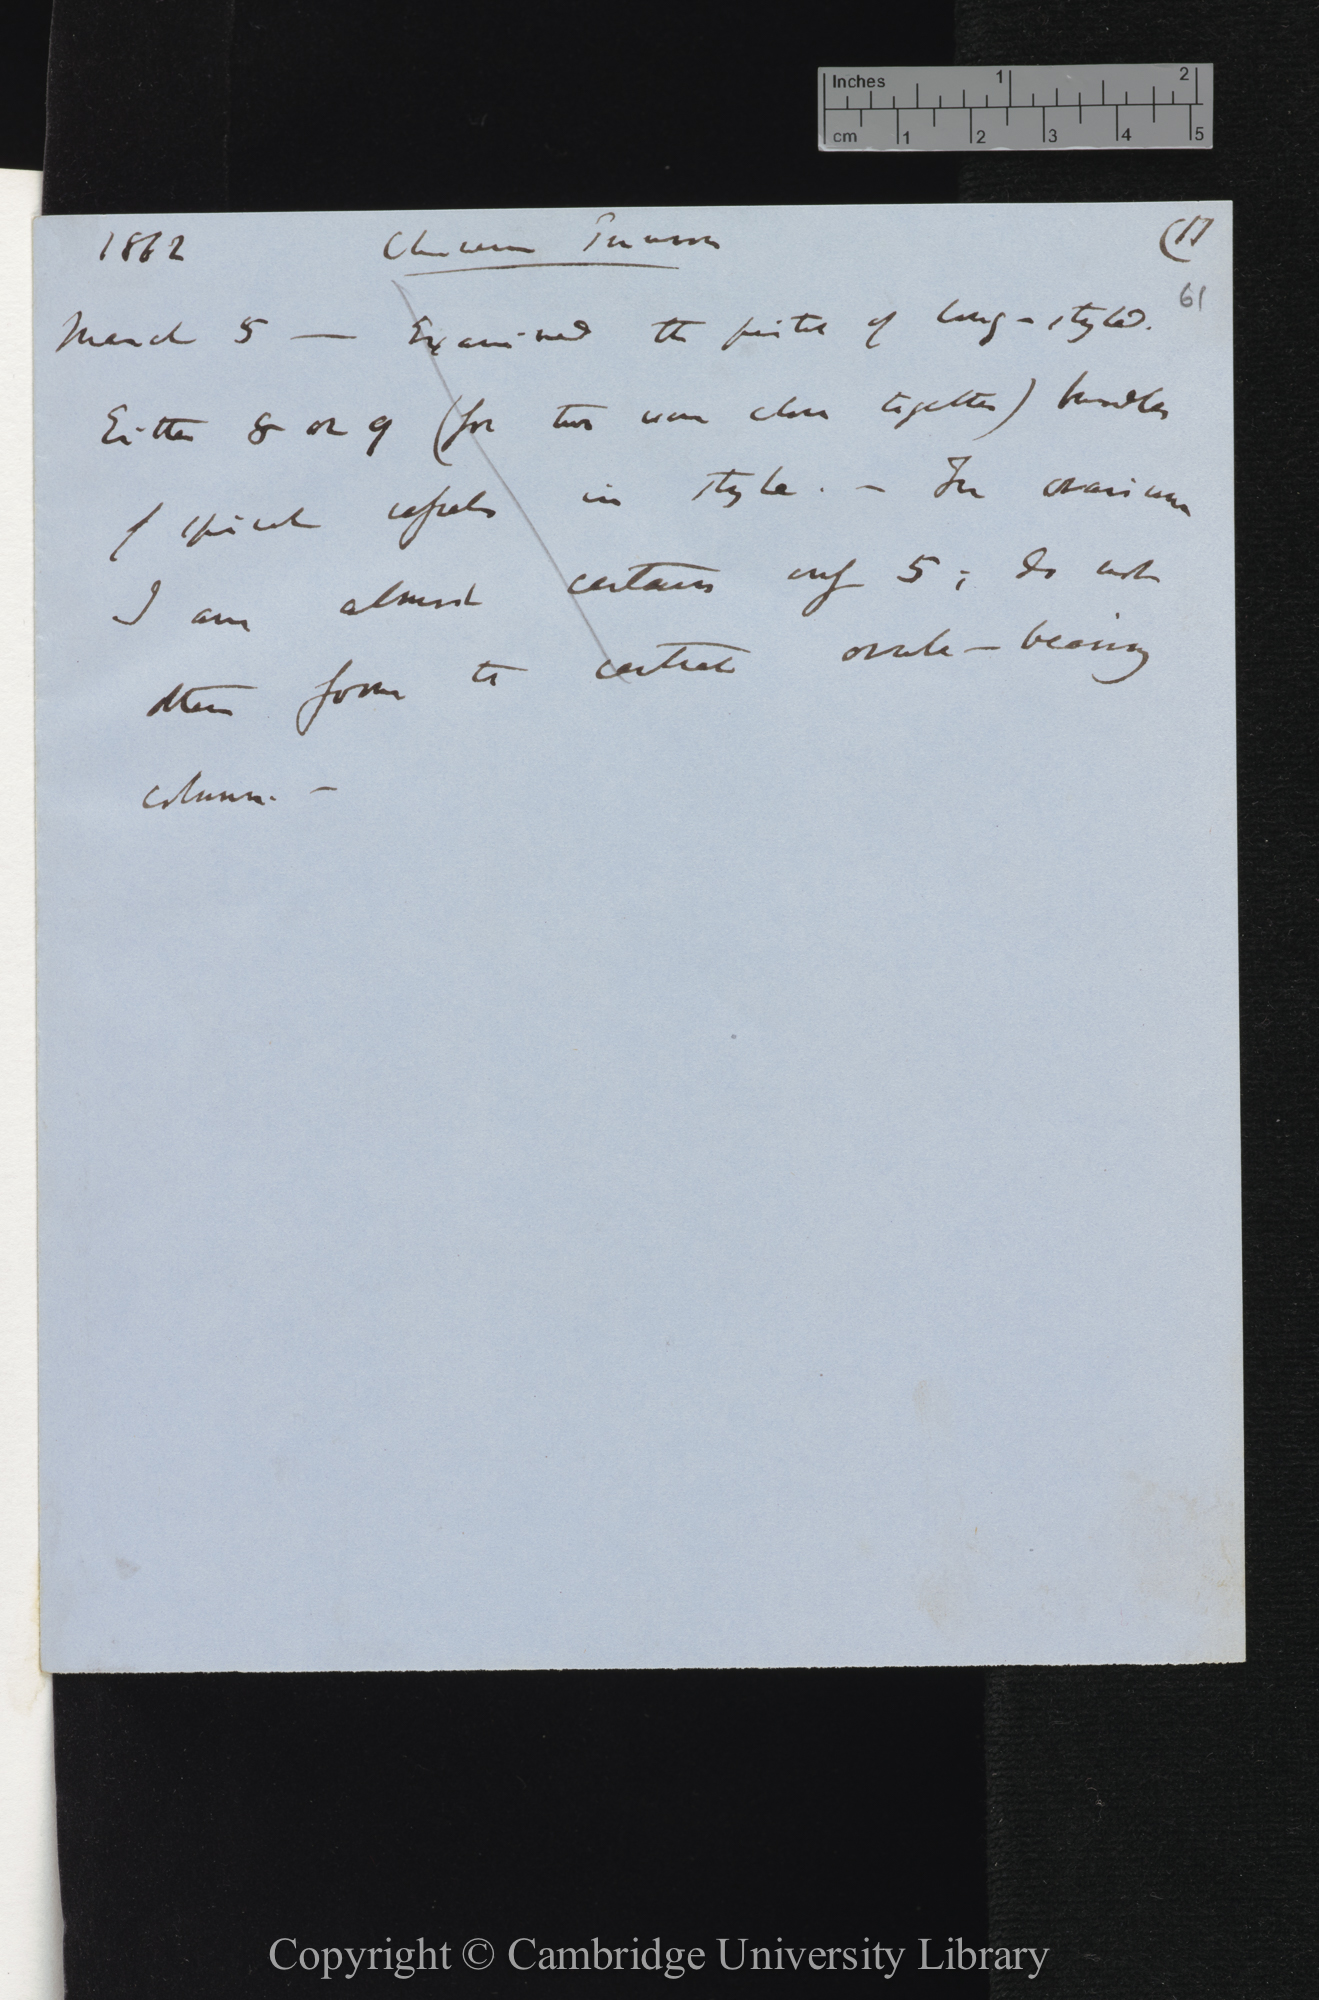 Inches 1 2
cm 1 2 3 4 5
1862 Chinese Primrose (17
61
March 5 — Examined the pistil of long-styled.
Either 8 or 9 (for two were close together) bundles
of spiral vessels in style. — In ovarium
I am almost certain only 5; do not
these form to central ovule-bearing
column. —
Copyright © Cambridge University Library